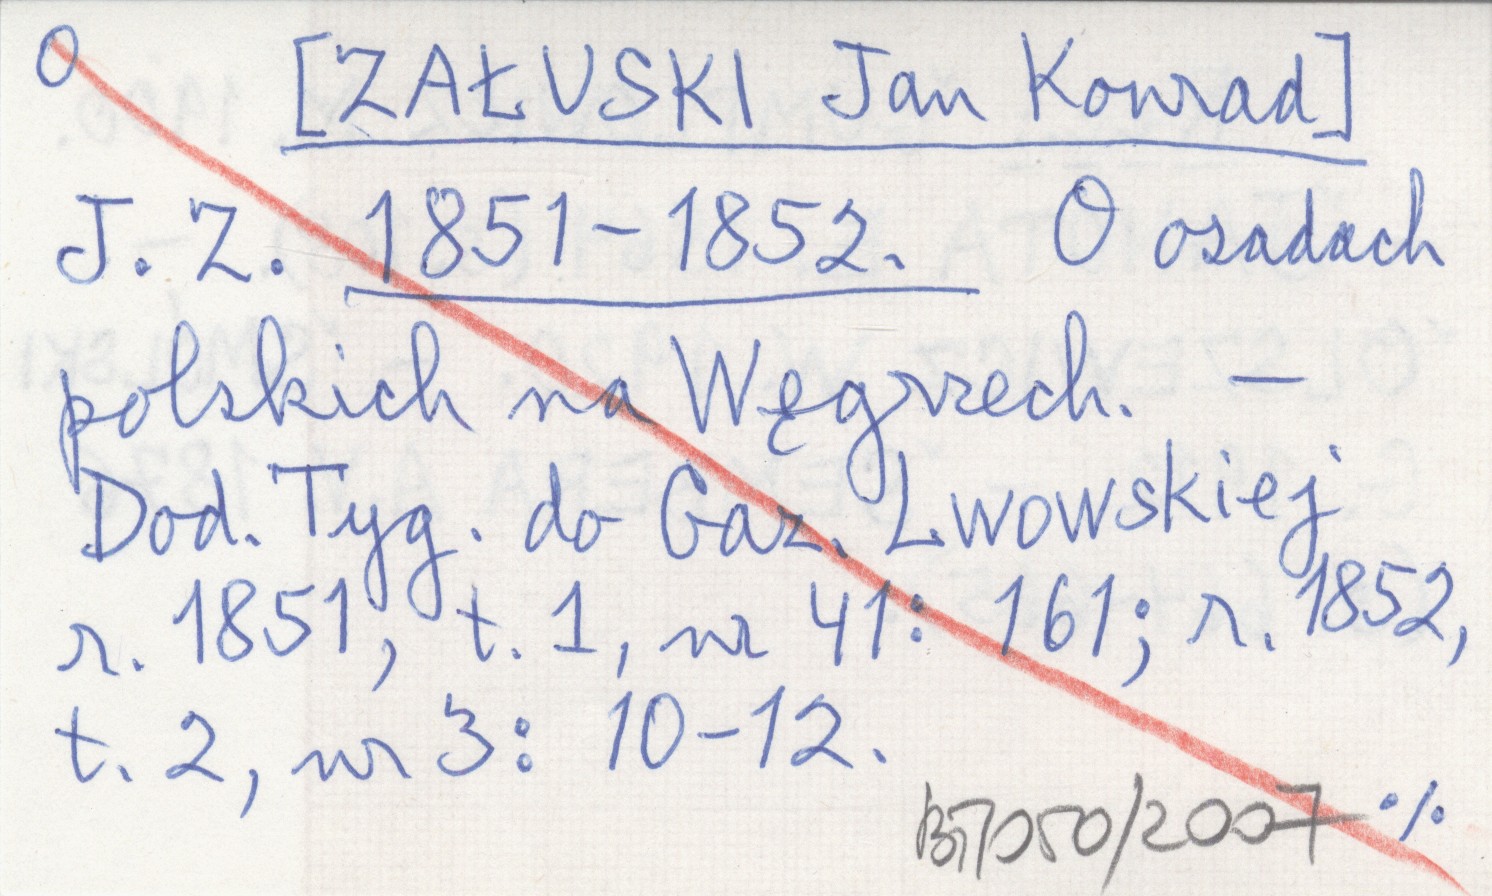 O [ZAŁUSKI Jan Konrad]
J. Z. 1851-1852. O osadach
polskich na Węgrzech. —
Dod. Tyg. do Gaz. Lwowskiej
r. 1851, t. 1, nr 41: 161; r. 1852,
t. 2, nr 3: 10-12.
/050/2007 %